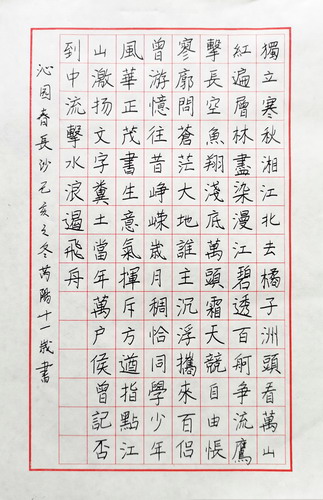 獨立寒秋湘江北去橘子洲頭看萬山
紅遍層林盡染漫江碧透百舸爭流鷹
擊長空魚翔淺底萬頭霜天競自由悵
寥廓問蒼茫大地誰主沉浮攜來百侶
曾游憶往昔崢嶸歲月稠恰同學少年
風華正茂書生意氣揮斥方遒指點江
山激扬文字糞土當年萬户侯曾記否
到中流擊水浪遏飛舟
沁园春長沙己亥之冬芮陽十一歲書